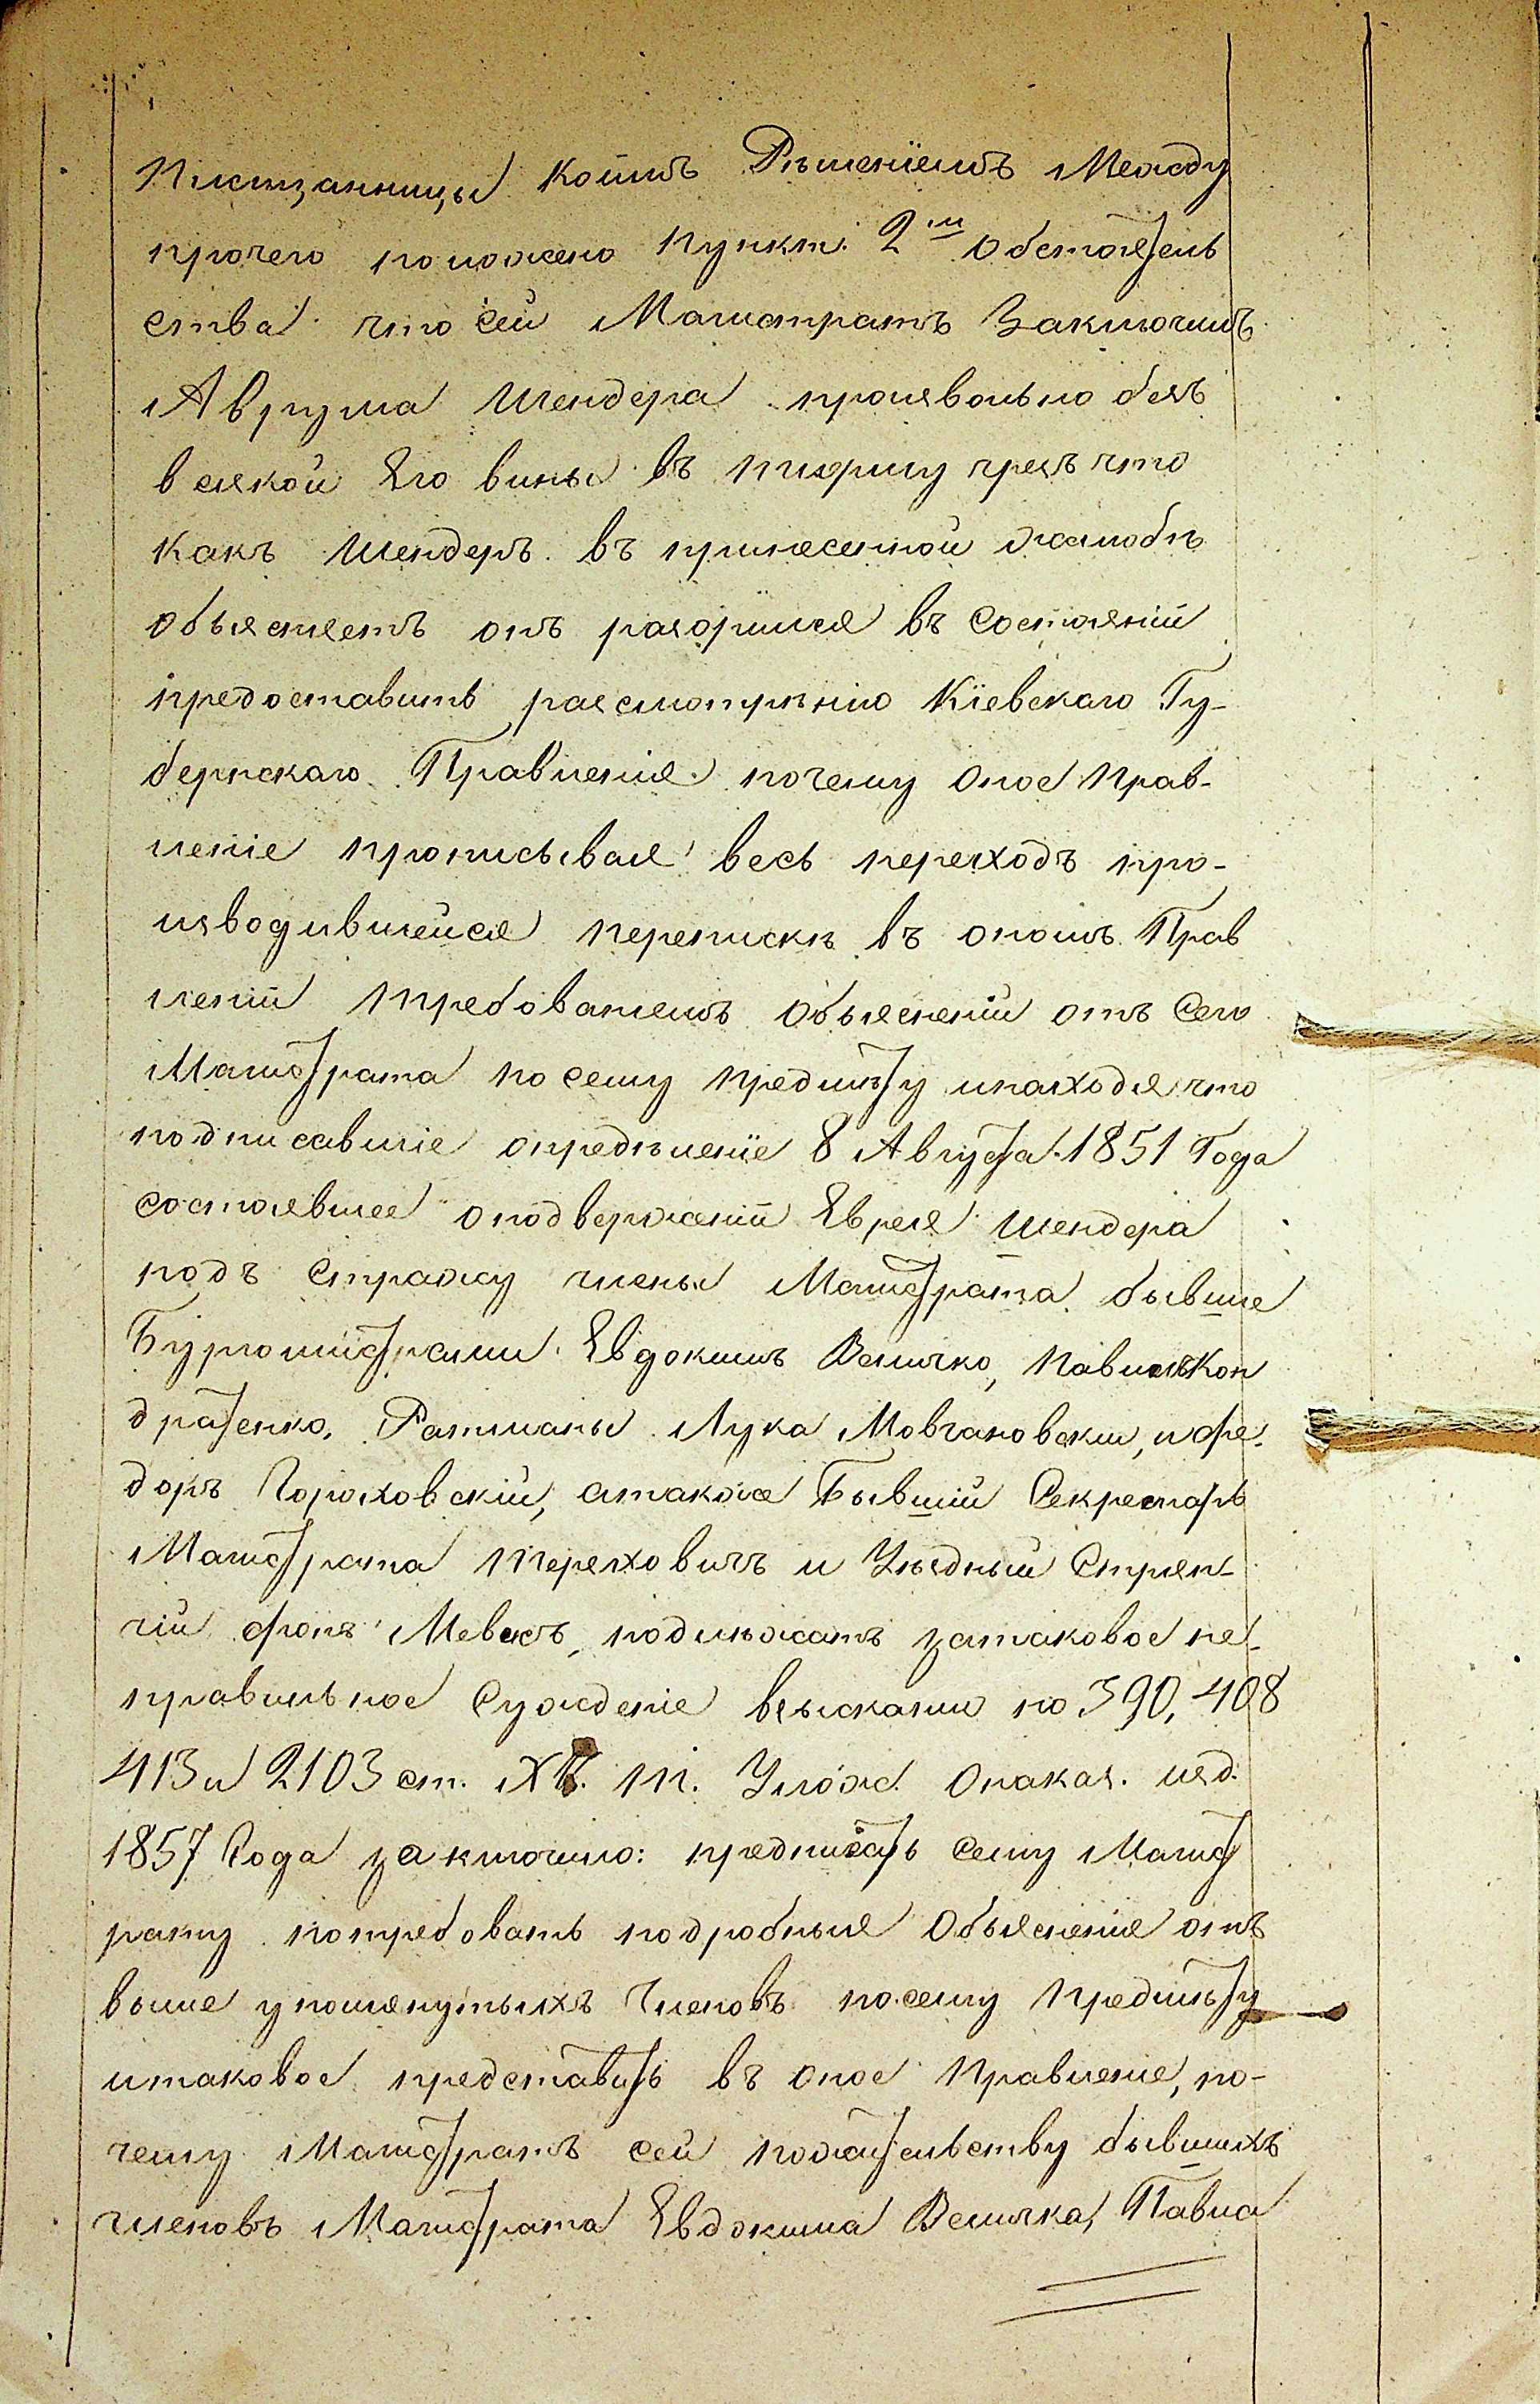 Пистзанницы коимъ Рѣшенїемъ Между
прочего положено пункт. 2м Обстоятель
ства что сей Магистратъ Заключилъ
Аврума Шендера произвольно безъ
всякой Его вины въ тюрму чрезъ что
какъ Шендеръ въ принесенной жалобѣ
объясняетъ онъ разорился въ Состоянїи
предоставить разсмотрѣнїю Кїевскаго Гу-
бернскаго Правленїя почему Оное прав-
ленїе прописывая весь переходъ про-
изводившейся перепискѣ въ ономъ Прав
ленїи требованїемъ Объясненїи отъ Сего
Магистрата по сему предмѣту инаходя что
подписавшїе опредѣленїе 8 Августа 1851 Года
состоявшее оподверженїи Еврея Шендера
подъ Стражу члены Магистрата бывше
Бургомистрами Евдокимъ Величко, Павелъ Кон
дратенко, Ратманы Лука Мовчановски, и Фе-
доръ Гороховскїй, атакже Бывшїй Секретарь
Магистрата Терлховичъ и Уѣздный Стряп-
чїй фонъ Мевесъ, подлѣжатъ затаковое не-
правильное Сужденїе взысканїю по 390, 408
413 и 2103 ст. т. Улож. Онаказ. изд.
1857 Года заключило: предписать Сему Магист
рату потребовать подробныя Объясненїя отъ
выше упомянутыхъ Членовъ по сему предмѣту
итаковое представить въ оное Правленїе, по-
чему Магистратъ сей пожательству бывшихъ
членовъ Магистрата Евдокима Величка, Павла